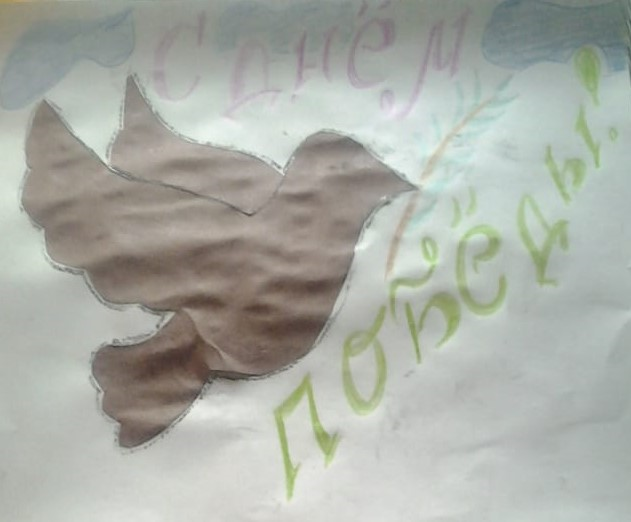 С днём
Победы!